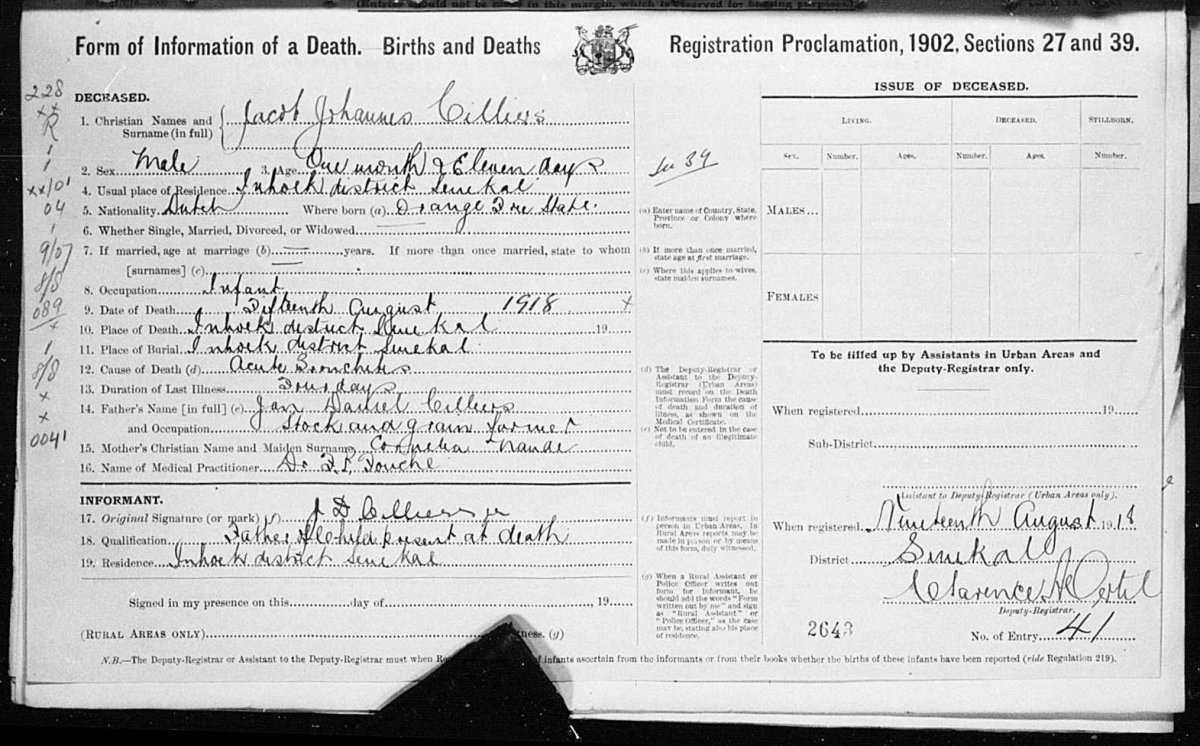 Form of Information of a Death. Births and Deaths Registration Proclamation, 1902, Sections 27 and 39.
228
××
R
1
1
××/01
04
1
9/07
8/8
089
×
1
8/8
×
×
0041
DECEASED.
1. Christian Names and Surname (in full) Jacob Johannes Cilliers
2. Sex Male 3. Age One month & Eleven days
4. Usual place of Residence Inhoek district Senekal
5. Nationality Dutch Where born (a) Orange Free State.
6. Whether Single, Married, Divorced, or Widowed
7. If married, age at marriage (b) years. If more than once married, state to whom
[surnames] (c)
8. Occupation Infant
9. Date of Death Fifteenth August 1918 ×
10. Place of Death Inhoek district Senekal 19
11. Place of Burial Inhoek district Senekal
12. Cause of Death (d) Acute Bronchitis
13. Duration of Last Illness Four days
14. Father's Name [in full] (e) Jan Daniel Cilliers
and Occupation Stock and grain farmer
15. Mother's Christian Name and Maiden Surname Cornelia Naude
16. Name of Medical Practitioner Dr Fouche
INFORMANT.
17. Original Signature (or mark) (f) J D Cilliers jr
18. Qualification Father of Child present at death
19. Residence Inhoek district Senekal
Signed in my presence on this day of , 19
(RURAL AREAS ONLY) (g)
N.B.—The Deputy-Registrar or Assistant to the Deputy-Registrar must when of infants ascertain from the informants or from their books whether the births of these infants have been reported (vide Regulation 219).
39
(a) Enter name of Country, State, Province or Colony where born.
(b) If more than once married, state age at first marriage.
(c) Where this applies to wives, state maiden surnames.
(d) The Deputy-Registrar or Assistant to the Deputy-Registrar (Urban Areas) must record on the Death Information Form the cause of death and duration of illness, as shown on the Medical Certificate.
(e) Not to be entered in the case of death of an illegitimate child.
(f) Informants must report in person in Urban Areas. In Rural Areas reports may be made in person or by means of this form, duly witnessed.
(g) When a Rural Assistant or Police Officer writes out form for informant, he should add the words "Form written out by me" and sign as "Rural Assistant" or "Police Officer," as the case may be, stating also his place of residence.
ISSUE OF DECEASED.
LIVING. DECEASED. STILLBORN.
Sex. Number. Ages. Number. Ages. Number.
MALES...
FEMALES
To be filled up by Assistants in Urban Areas and
the Deputy-Registrar only.
When registered 19
Sub-District
Assistant to Deputy-Registrar (Urban Areas only).
When registered Nineteenth August 1918
District Senekal
Clarence
Deputy-Registrar.
2643 No. of Entry 41